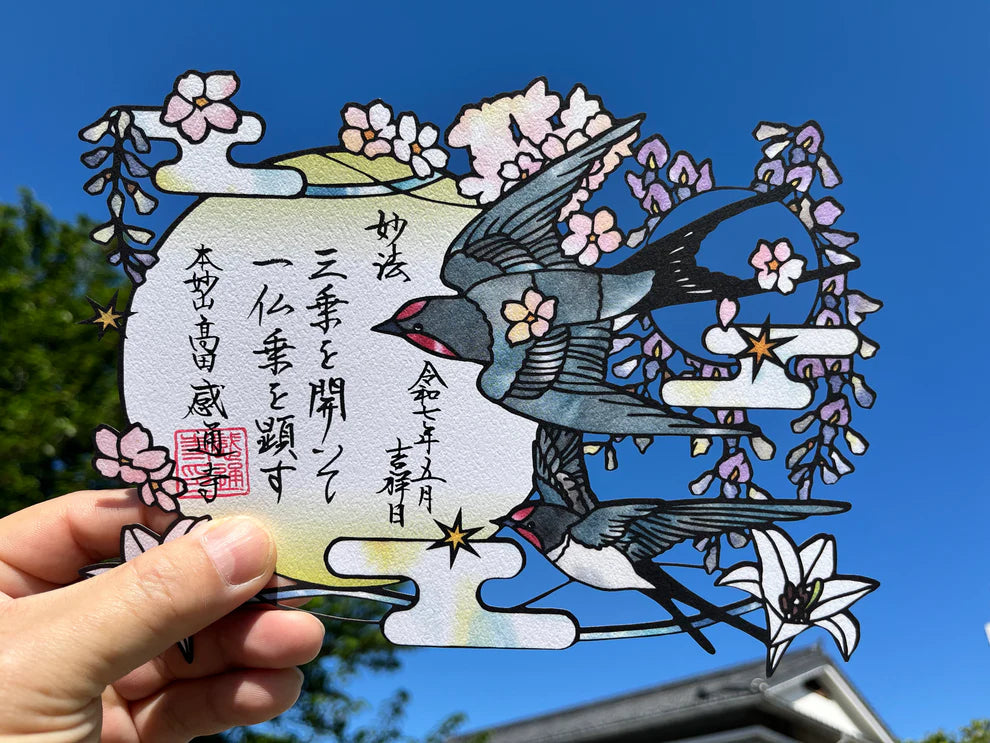 令和七年五月
吉祥日
妙法
三乗を開いて
一仏乗を顕す
本妙山高田感通寺